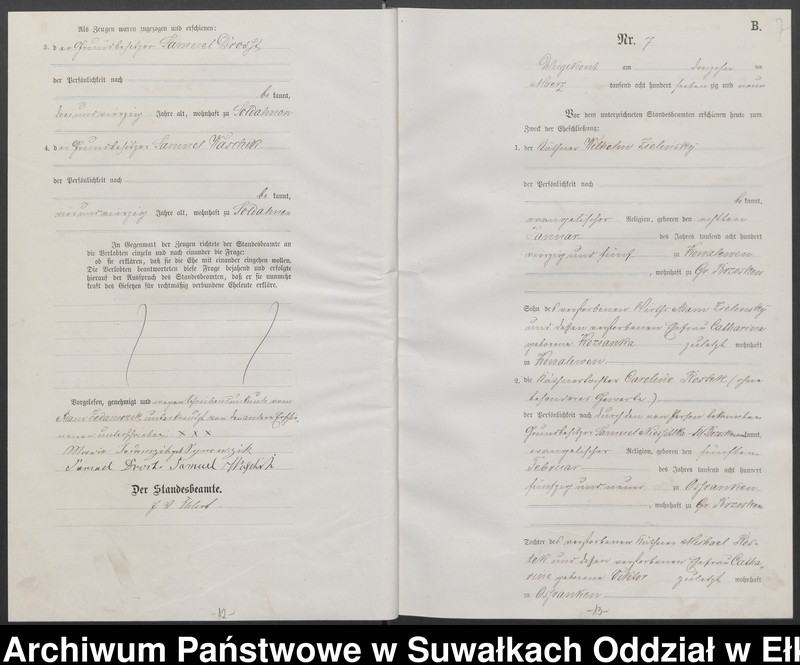 Als Zeugen waren zugezogen und erschienen:
3. der Grundbesitzer Samuel Drost
der Persönlichkeit nach
be kannt,
neunundvierzig Jahre alt, wohnhaft zu Soldahnen
4. der Grundbesitzer Samuel
der Persönlichkeit nach
be kannt,
vierundvierzig Jahre alt, wohnhaft zu Soldahnen
In Gegenwart der Zeugen richtete der Standesbeamte an
die Verlobten einzeln und nach einander die Frage:
ob sie erklären, daß sie die Ehe mit einander eingehen wollen.
Die Verlobten beantworteten diese Frage bejahend und erfolgte
hierauf der Ausspruch des Standesbeamten, daß er sie nunmehr
kraft des Gesetzes für rechtmäßig verbundene Eheleute erkläre.
Vorgelesen, genehmigt und wegen Schreibensunkunde vom
Adam unterkreuzt von den andern Erschie-
nenen unterschrieben XXX
Samuel Drost Samuel
Der Standesbeamte.
-12-
B.
7
Nr. 7
Dlugikont am dreizehn ten
Maerz tausend acht hundert sieben zig und neun
Vor dem unterzeichneten Standesbeamten erschienen heute zum
Zweck der Eheschließung:
1. der Käthner Wilhelm Zielinsky
der Persönlichkeit nach
be kannt,
evangelischer Religion, geboren den achten
Januar des Jahres tausend acht hundert
vierzig und fünf zu Konalewen
, wohnhaft zu Gr. Rozosken
Sohn des verstorbenen Wirths Adam Zielinsky
und dessen verstorbenen Ehefrau Catharine
geborene zuletzt wohnhaft
zu Konalewen
2. die Käthnertochter Caroline Kostek (ohne
besonderes Gewerbe)
der Persönlichkeit nach durch den von Person bekannten
Grundbesitzer Samuel kannt,
evangelischer Religion, geboren den fünften
Februar des Jahres tausend acht hundert
fünfzig und neun zu Ostranken
, wohnhaft zu Gr. Rozosken
Tochter des verstorbenen Käthners Michael Kos-
tek und dessen verstorbenen Ehefrau Catha-
rine geborene zuletzt wohnhaft
zu Ostranken
-13-
Archiwum Państwowe w Suwałkach Oddział w Ełk